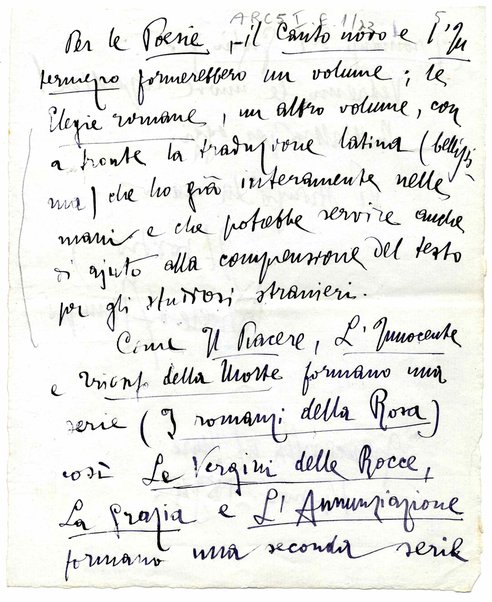 ARC5 I. E. 1/22
Per le Poesie, - il Canto novo e l'In
termezzo formerebbero un volume; le
Elegie romane, un altro volume, con
a fronte la traduzione latina (bellissi
ma) che ho già interamente nelle
mani e che potrebbe servire anche
di ajuto alla comprensione del testo
per gli studiosi stranieri.
Come Il Piacere, L'Innocente
e Trionfo della Morte formano una
serie (I romanzi della Rosa)
così Le Vergini delle Rocce,
La Grazia e L'Annunziazione
formano una seconda serie